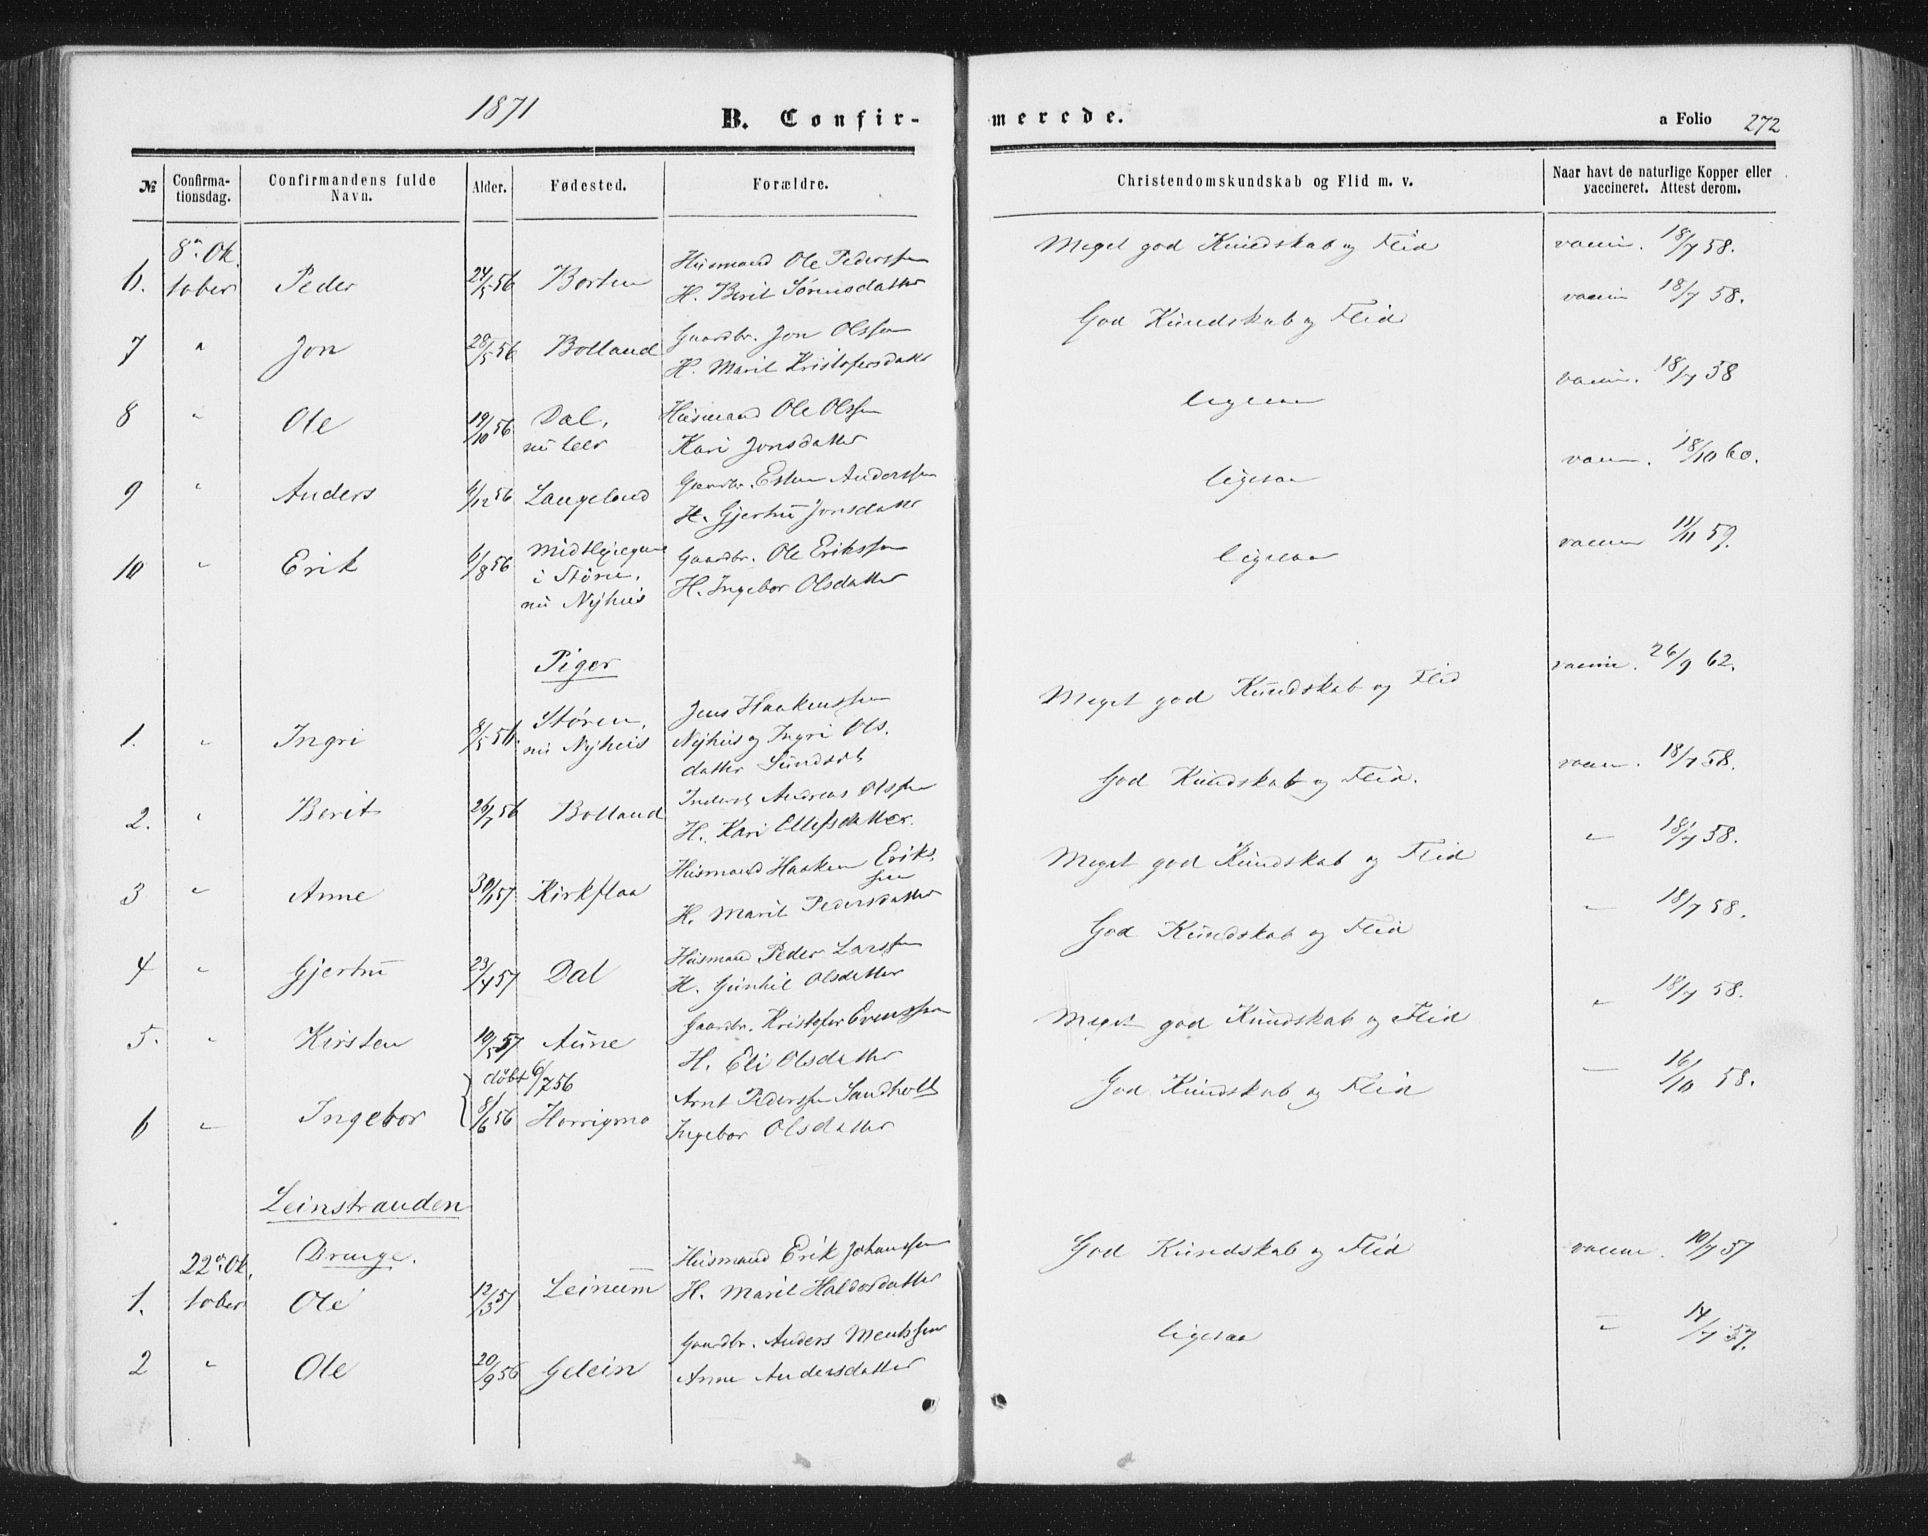 1871
B. Confirmerede.
a Folio 272
№ Confirmationsdag. Confirmandens fulde Navn. Alder. Fødested. Forældre. Christendomskundskab og Flid m. v. Naar havt de naturlige Kopper eller vaccineret. Attest derom.
6. 8de Oktober Peder 24/5 56 Borten Husmand Ole Pederssen Meget god Kundskab og Flid vaccin. 18/7 58.
H. Berit Sørensdatter
7 " Jon 28/5 56 Bolland Gaardbr. Jon Olssen God Kundskab og Flid vaccin 18/7 58.
H. Marit Kristofersdatt
8 " Ole 19/10 56 Dal, Husmand Ole Olssen ligesaa vaccin. 18/7 58
nu Leer Kari Jonsdatter
9 " Anders 6/12 56 Langeland Gaardbr. Esten Anderssen ligesaa vaccin. 18/10 60.
H. Gjertru Jonsdatter
10 " Erik 6/8 56 Gaardbr. Ole Erikssen ligesaa vaccin 11/11 59.
i Støren, H. Ingebor Olsdatter
nu Nyhus
Piger
1. " Ingri 8/5 56. Støren, Jens Haakenssen Meget god Kundskab og Flid vaccin. 26/9 62.
nu Nyhus Nyhus og Ingri Ols.
datter Sundset
2. " Berit 26/7 56 Bolland Inderst Andreas Olssen God Kundskab og Flid. vaccin. 18/7 58.
H. Kari Ellefsdatter.
3 " Anne 30/1 57 Kirkflaa Husmand Haaken Eriks Meget god Kundskab og Flid " 18/7 58.
sen
H. Marit Pedersdatter
4 " Gjertru 23/4 57 Dal Husmand Peder Larssen God Kundskab og Flid " 18/7 58.
H. Gunhil Olsdatter
5. " Kirsten 10/5 57 Aune Gaardbr. Kristofer Evenssen Meget god Kundskab og Flid " 18/7 58.
H. Eli Olsdatter
døbt 6/7 56
6 " Ingebor 8/6 56 Horrigmo Arnt Pederssen Sandholt God Kundskab og Flid " 16/10 58.
Ingebor Olsdatter
Leinstranden
Drenge.
1. 22de Oktober Ole 12/3 57 Leinum Husmand Erik Johanssen God Kundskab og Flid vaccin. 10/7 57
H. Marit Haldosdatter
2 " Ole 20/9 56 Gelein Gaardbr. Anders Mentssen ligesaa " 14/7 57.
Anne Andersdatter